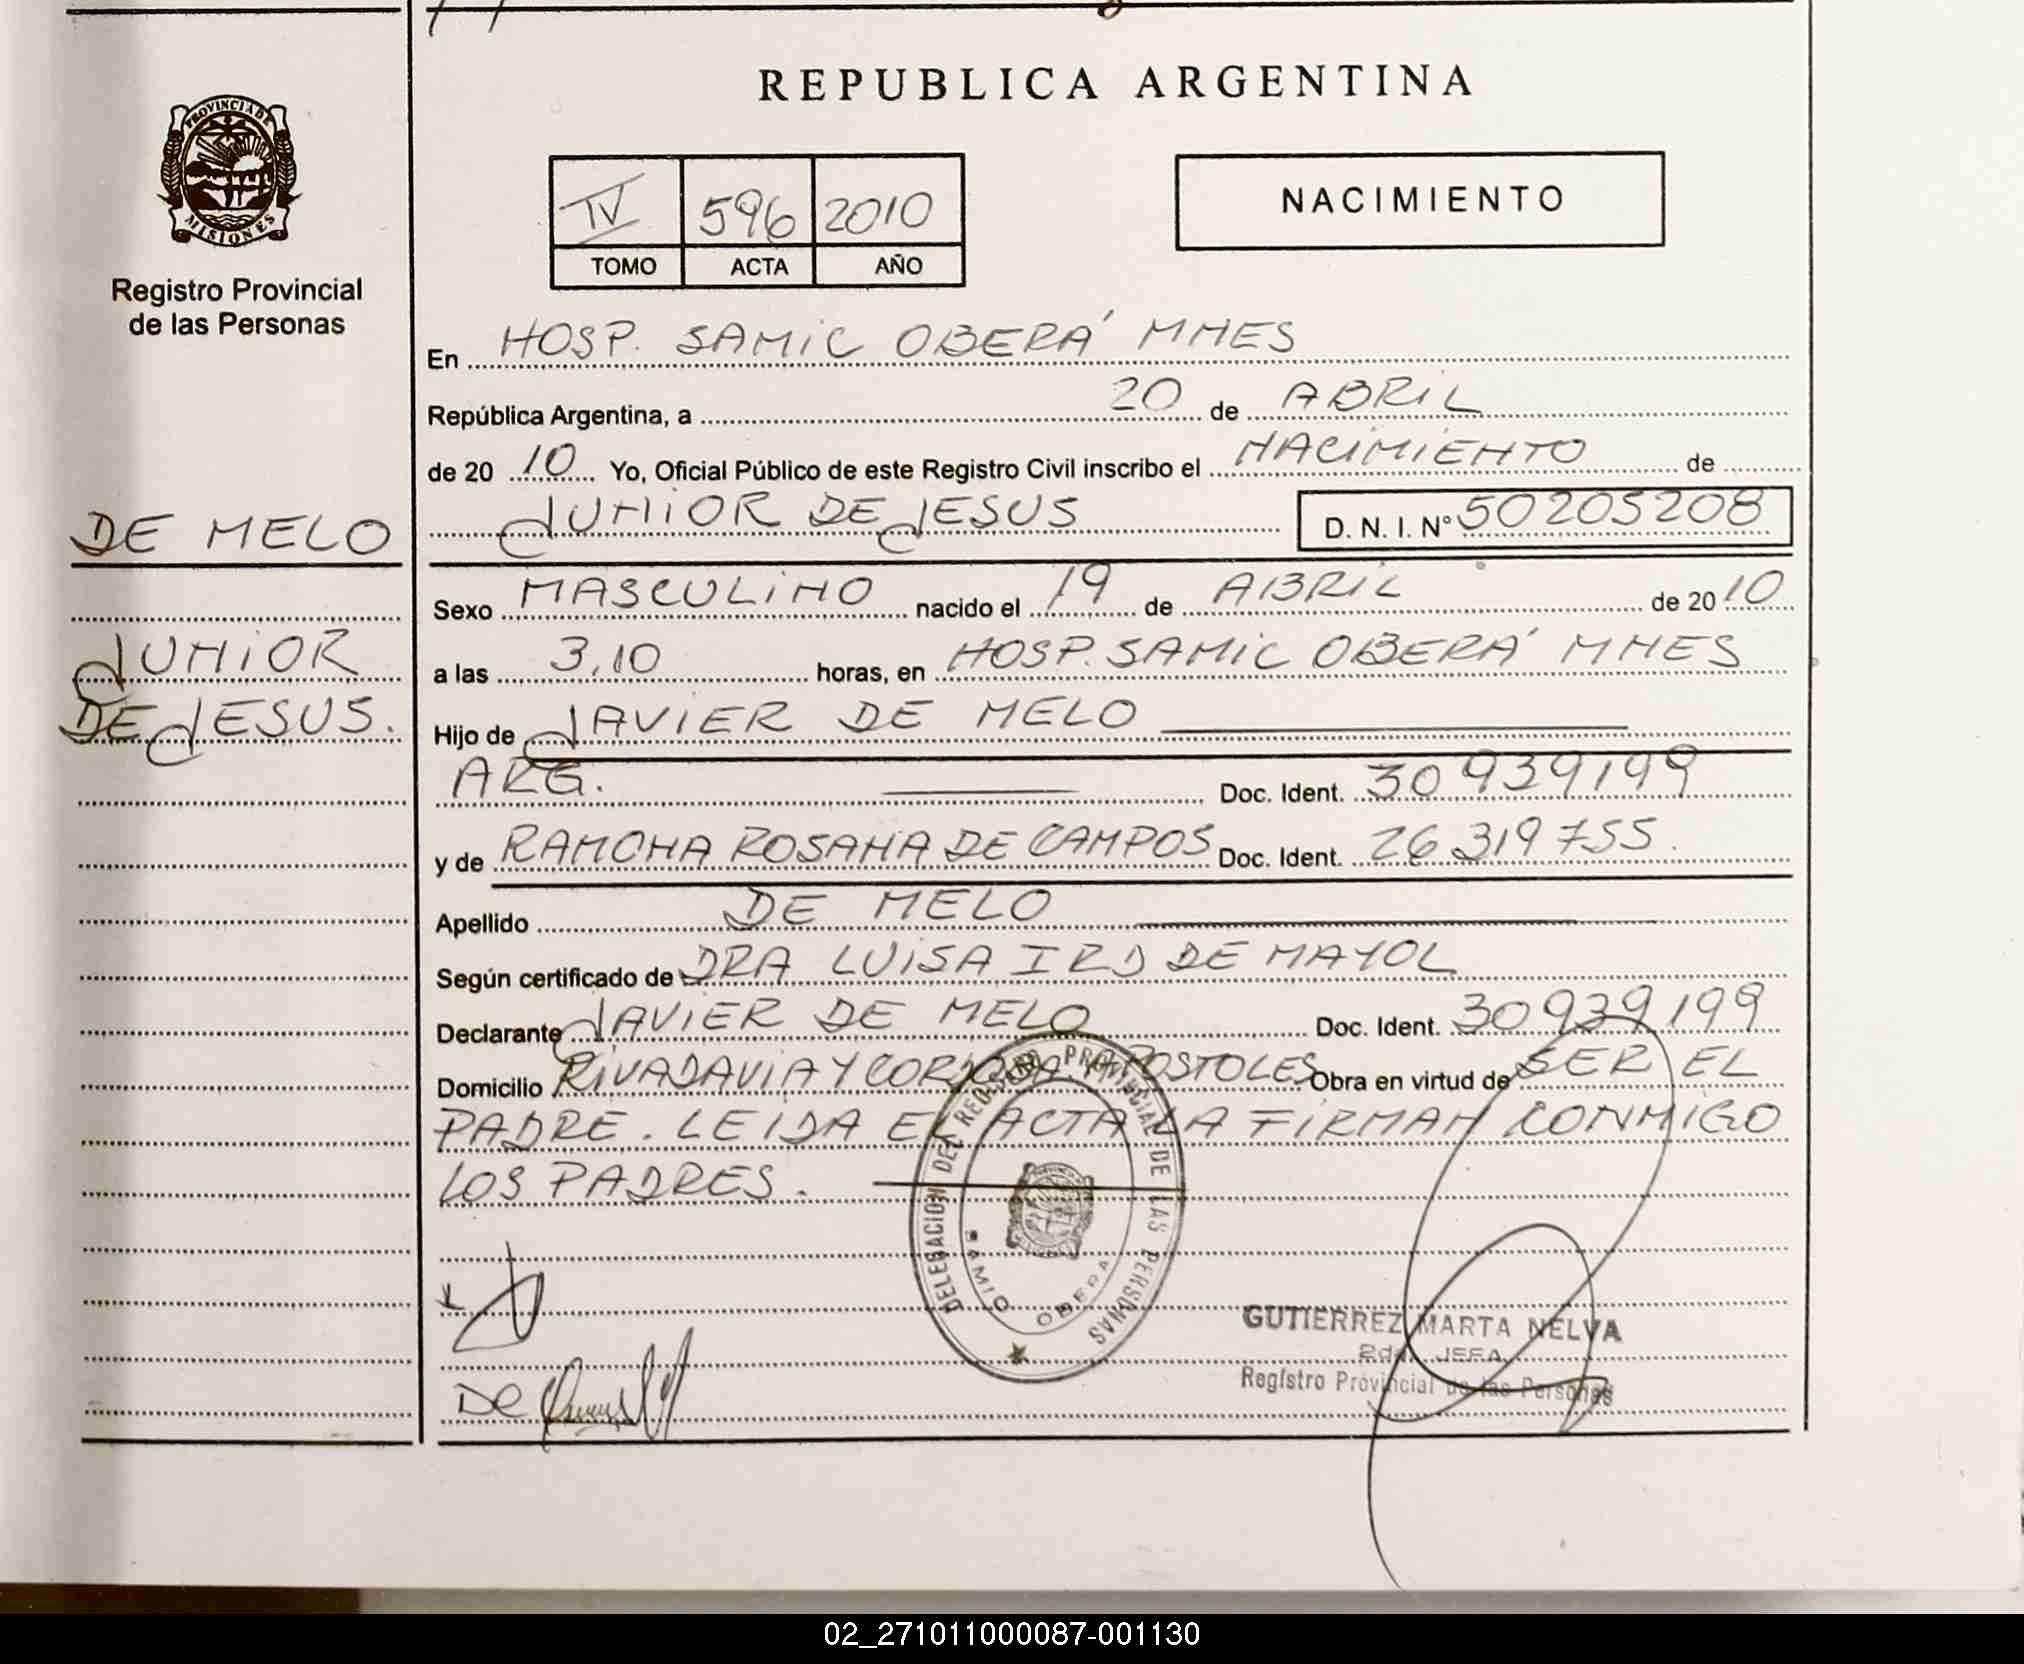 REPUBLICA ARGENTINA
PROVINCIA DE
MISIONES
Registro Provincial
de las Personas
IV 596 2010
TOMO ACTA AÑO
NACIMIENTO
En HOSP. SAMIC OBERÁ MNES
República Argentina, a 20 de ABRIL
de 20 10 Yo, Oficial Público de este Registro Civil inscribo el NACIMIENTO de
JUNIOR DE JESUS D. N. I. Nº 50205208
DE MELO
JUNIOR
DE JESUS.
Sexo MASCULINO nacido el 19 de ABRIL de 20 10
a las 3,10 horas, en HOSP. SAMIC OBERÁ MNES
Hijo de JAVIER DE MELO
ARG. Doc. Ident. 30939199
y de RAMONA ROSANA DE CAMPOS Doc. Ident. 26319755.
Apellido DE MELO
Según certificado de DRA LUISA DE MAYOL
Declarante JAVIER DE MELO Doc. Ident. 30939199
Domicilio RIVADAVIA Y CORDOBA APOSTOLES Obra en virtud de SER EL
PADRE. LEIDA EL ACTA LA FIRMAN CONMIGO
LOS PADRES.
DELEGACION DEL REGISTRO PROVINCIAL DE LAS PERSONAS
SAMIC OBERA
GUTIERREZ MARTA NELVA
2da. JEFA
Registro Provincial de las Personas
De
02_271011000087-001130